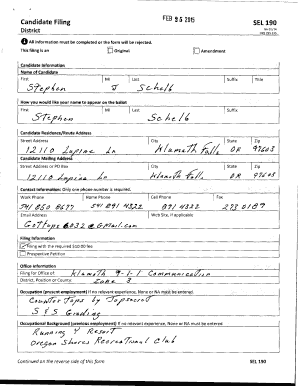 Candidate Filing
District
FEB 25 2015
SEL 190
All information must be completed or the form will be rejected.
This filing is an
Original
Amendment
Candidate Information
Name of Candidate
First
MI
Last
Suffix
Title
Stephen
J
Schelb
How you would like your name to appear on the ballot
First
MI
Last
Suffix
Stephen
Schelb
Candidate Residence/Route Address
Street Address
City
State
Zip
12110 Lupine Ln
Klamath Falls
OR
97603
Candidate Mailing Address
Street Address or PO Box
City
State
Zip
12110 Lupine Ln
Klamath Falls
OR
97603
Contact Information: Only one phone number is required.
Work Phone
Home Phone
Cell Phone
Fax
541 850 8677
541 891 4322
891 4322
273 0187
Email Address
Web Site, if applicable
@Gmail.com
Filing Information
Filing with the required $10.00 fee
Prospective Petition
Office Information
Filing for Office of:
Klamath 9-1-1 Communication
District, Position or County:
Zone 3
Occupation (present employment) If no relevant experience, None or NA must be entered.
Counter Tops by Topsecret
S & S Grading
Occupational Background (previous employment) If no relevant experience, None or NA must be entered.
Running Y Resort
Oregon Shores Recreational Club
Continued on the reverse side of this form
SEL 190